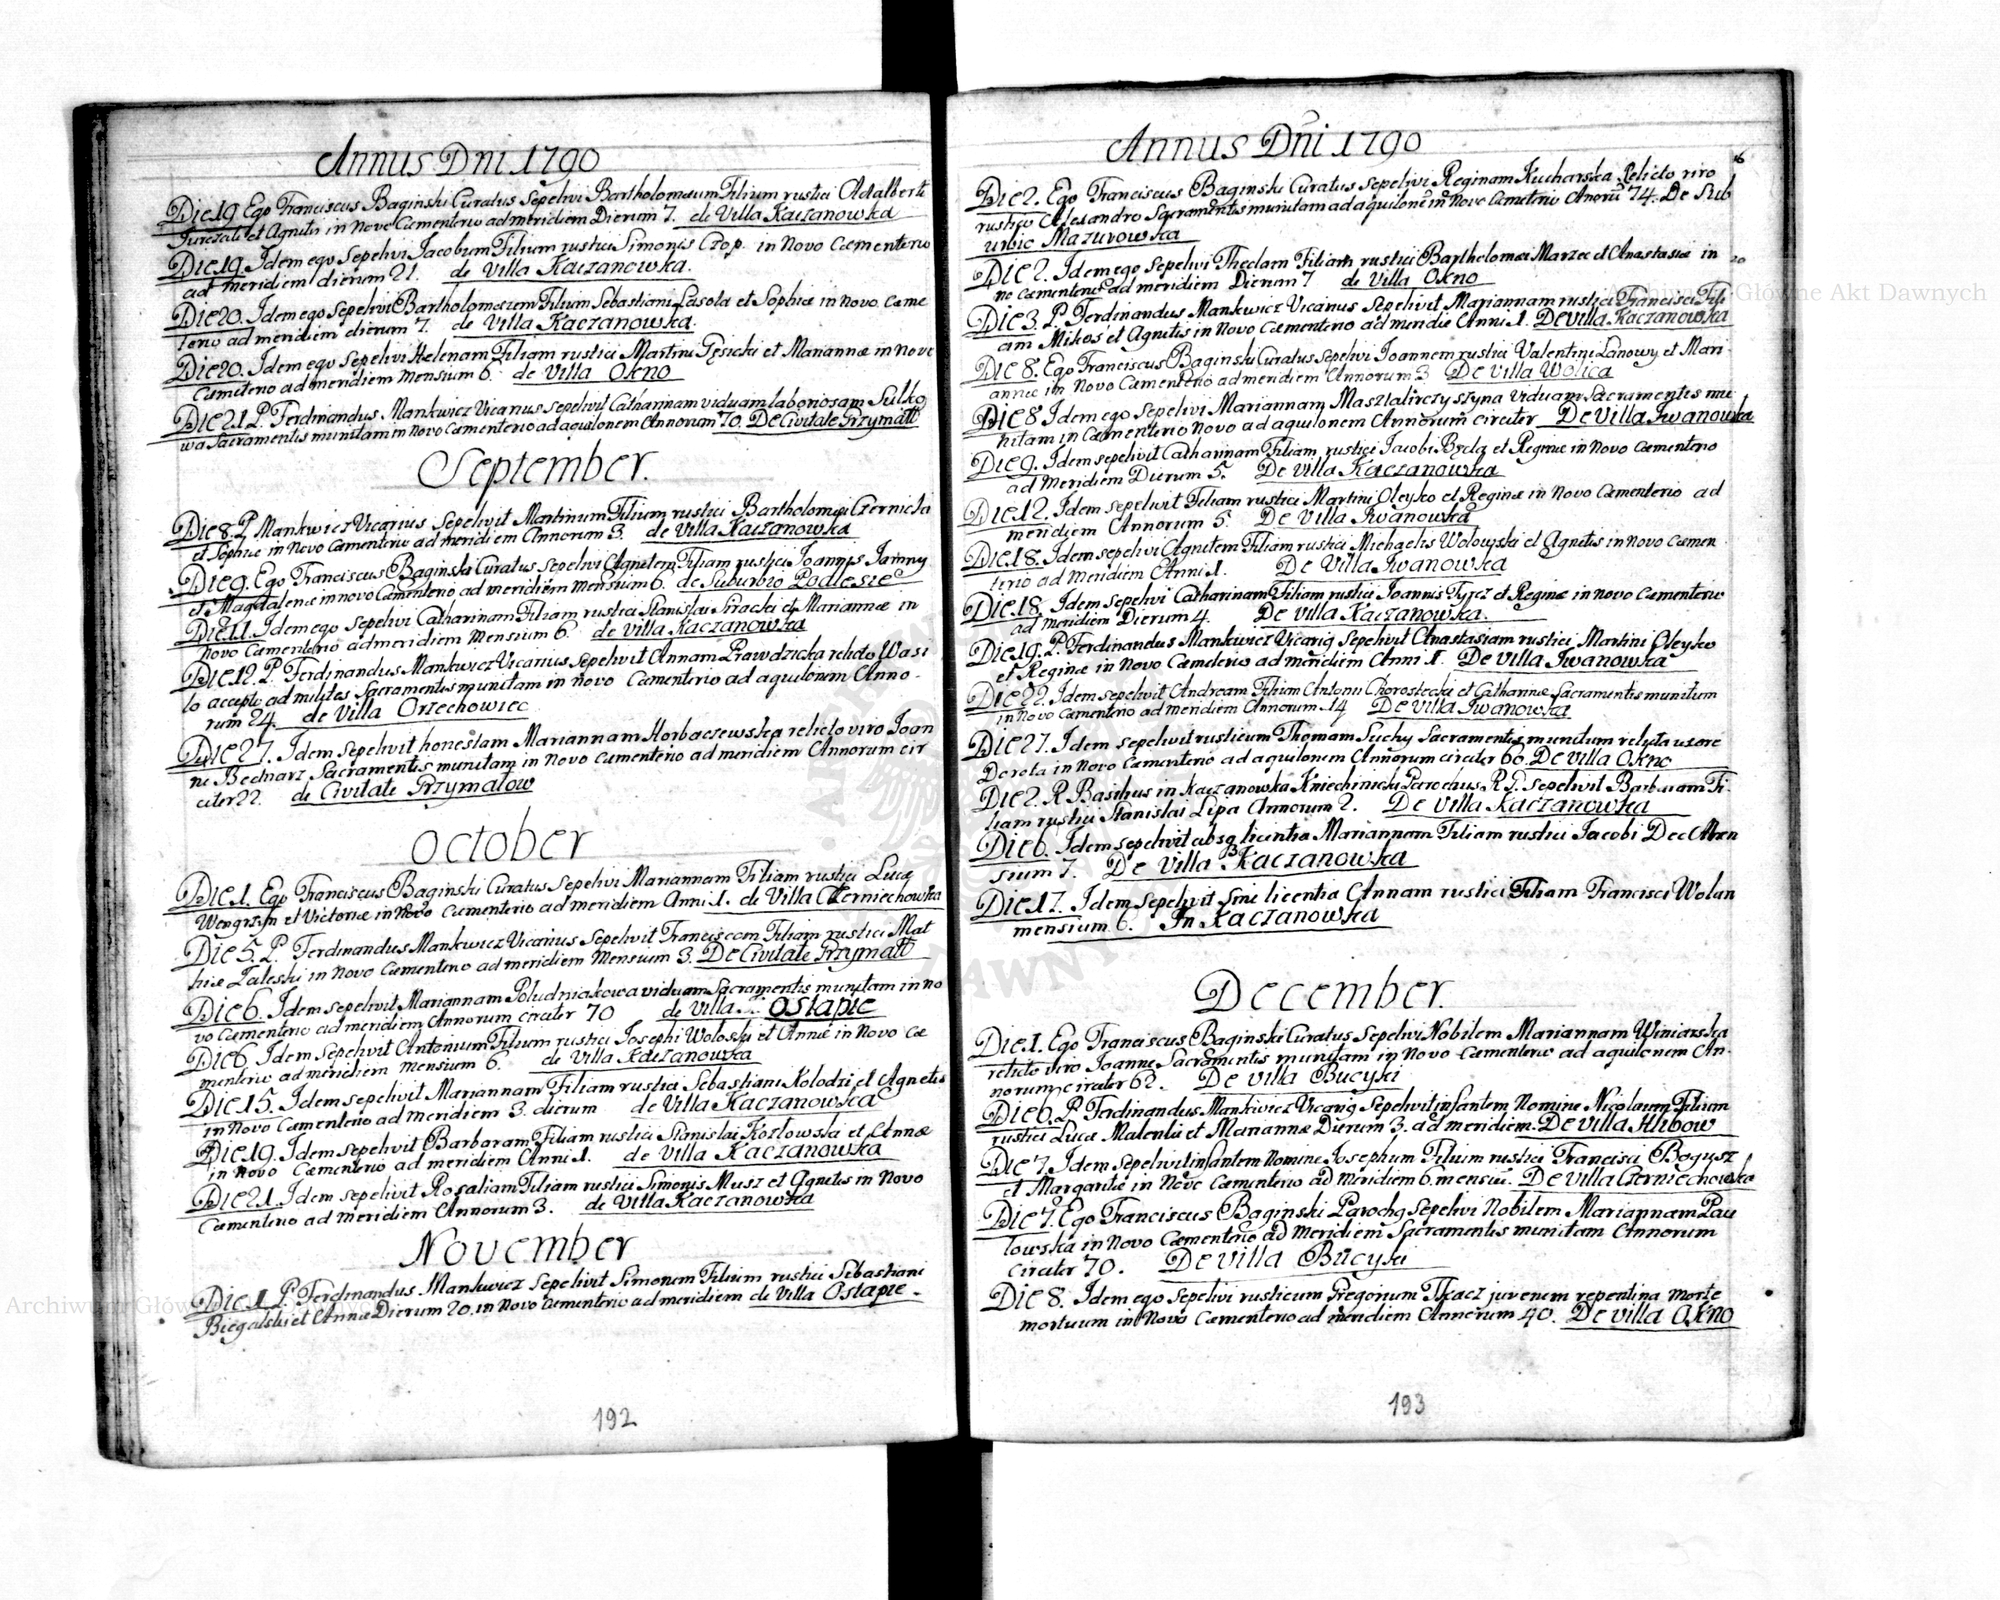 Annus Dni 1790
Die 19 Ego Franciscus Baginski Curatus Sepelivi Bartholomæum Filium rustici Adalberti
et Agnetis in Novo Cæmenterio ad meridiem Dierum 7. de Villa Kaczanowka
Die 19. Idem ego Sepelivi Jacobum Filium rustici Simonis Czop. in Novo Cæmenterio
ad meridiem dierum 21. de Villa Kaczanowka.
Die 20. Idem ego Sepelivi Bartholomæum Filium Sebastiani Lasota et Sophiæ in Novo Cæme
terio ad meridiem dierum 7. de Villa Kaczanowka.
Die 20. Idem ego Sepelivi Helenam Filiam rustici Martini Gęsicki et Mariannæ in Novo
Cæmiterio ad meridiem Mensium 6. de Villa Okno
Die 21. P. Ferdinandus Mankwicz Vicarius Sepelivit Catharinam viduam laboriosam Sulko
wa Sacramentis munitam in Novo Cæmenterio ad aquilonem Annorum 70. De Civitate Grzymałł
September.
Die 8. P. Mankwicz Vicarius Sepelivit Martinum Filium rustici Bartholomæi Czernicki
et Sophiæ in Novo Cæmenterio ad meridiem Annorum 3. de Villa Kaczanowka
Die 9. Ego Franciscus Baginski Curatus Sepelivi Agnetem Filiam rustici Joannis Jamny
et Magdalenæ in novo Cæmenterio ad meridiem Mensium 6. de Suburbio Podlesie
Die 11. Idem ego Sepelivi Catharinam Filiam rustici Stanislai Siracki et Mariannæ in
Novo Cæmenterio ad meridiem Mensium 6. de Villa Kaczanowka
Die 12. P. Ferdinandus Mankwicz Vicarius Sepelivit Annam Prawdzicka relicto Wasi
lo accepto ad milites Sacramentis munitam in novo Cæmenterio ad aquilonem Anno-
rum 24. de Villa Orzechowiec
Die 27. Idem Sepelivit honestam Mariannam Horbaczewska relicto viro Joan
ne Bednarz Sacramentis munitam in Novo Cæmenterio ad meridiem Annorum cir
citer 22. de Civitate Grzymałow
October
Die 1. Ego Franciscus Baginski Curatus Sepelivi Mariannam Filiam rustici Lucæ
Wengrzyn et Victoriæ in Novo Cæmenterio ad meridiem Anni 1. de Villa Czerniechowka
Die 5. P. Ferdinandus Mankwicz Vicarius Sepelivit Franciscam Filiam rustici Mat
hiæ Zaleski in Novo Cæmenterio ad meridiem Mensium 3. De Civitate Grzymałł
Die 6. Idem Sepelivit Mariannam Poludniakowa viduam Sacramentis munitam in no
vo Cæmenterio ad meridiem Annorum circiter 70 de Villa... Ostapie
Die 6 Idem Sepelivit Antonium Filium rustici Josephi Woloski et Annæ in Novo Cæ
menterio ad meridiem Mensium 6. de Villa Kaczanowka
Die 15. Idem Sepelivit Mariannam Filiam rustici Sebastiani Kolodzi et Agnetis
in Novo Cæmenterio ad meridiem 3. dierum de Villa Kaczanowka
Die 19. Idem Sepelivit Barbaram Filiam rustici Stanislai Kozlowski et Annæ
in Novo Cæmenterio ad meridiem Anni 1. de Villa Kaczanowka
Die 21. Idem Sepelivit Rosaliam Filiam rustici Simonis Musz et Agnetis in Novo
Cæmenterio ad Meridiem Annorum 3. de Villa Kaczanowka
November
Die 1. P. Ferdinandus Mankwicz Sepelivit Simonem Filium rustici Sebastiani
Biegalski et Annæ Dierum 20. in Novo Cæmenterio ad meridiem de Villa Ostapie.
192
Annus Dni 1790
Die 2. Ego Franciscus Baginski Curatus Sepelivi Reginam Kucharska Relicto viro
rustico Alexandro Sacramentis munitam ad aquilonem in Novo Cæmeterio Anorū 74. De Sub
urbio Mazurowka
Die 2. Idem ego Sepelivi Theclam Filiam rustici Bartholomæi Marzec et Anastasiæ in
no Cæmenterio ad meridiem Dierum 7 de Villa Okno
Die 3. P. Ferdinandus Mankwicz Vicarius Sepelivit Mariannam rustici Francisci Fili
am Mikos et Agnetis in Novo Cæmenterio ad meridie Anni 1. De Villa Kaczanowka
Die 8. Ego Franciscus Baginski Curatus Sepelivi Joannem rustici Valentini Lanowy et Mari-
annæ in Novo Cæmenterio ad meridiem Annorum 3 De Villa Wolica
Die 8 Idem ego Sepelivi Mariannam Masztalirczyszyna Viduam Sacramentis mu
nitam in Cæmenterio Novo ad aquilonem Annorum circiter De Villa Iwanowka
Die 9. Idem sepelivit Catharinam Filiam rustici Jacobi et Reginæ in Novo Cæmenterio
ad Meridiem Dierum 5. De Villa Kaczanowka
Die 12. Idem sepelivit Filiam rustici Martini Oleysko et Reginæ in Novo Cæmenterio ad
meridiem Annorum 5. De Villa Iwanowka
Die 18. Idem sepelivi Agnetem Filiam rustici Michaelis Wolowski et Agnetis in Novo Cæmen
terio ad Meridiem Anni 1. De Villa Iwanowka
Die 18. Idem Sepelivi Catharinam Filiam rustici Joannis Tyrcz et Reginæ in Novo Cæmenterio
ad Meridiem Dierum 4. De Villa Kaczanowka.
Die 19. P. Ferdinandus Mankwicz Vicariq Sepelivit Anastasiam rustici Martini Oleysko
et Reginæ in Novo Cæmeterio ad meridiem Anni 1. De Villa Iwanowka
Die 22. Idem sepelivit Andream Filium Antoni Chorostecki et Catharinæ Sacramentis munitum
in Novo Cæmenterio ad meridiem Annorum 14 De Villa Iwanowka
Die 27. Idem sepelivit rusticum Thomam Suchy Sacramentis munitum relicta uxore
Dorota in Novo Cæmenterio ad aquilonem Annorum circiter 60. De Villa Okno
Die 2. R. Basilius in Kaczanowka Kniechinicki Parochus R. G. Sepelivit Barbaram Fi-
liam rustici Stanislai Lipa Annorum 2. De Villa Kaczanowka
Die 6. Idem sepelivit absq licentia Mariannam Filiam rustici Jacobi Dec Men
sium 7. De Villa Kaczanowka
Die 17. Idem Sepelivit Sine licentia Annam rustici Filiam Francisci Wolan
mensium 6. In Kaczanowka
December.
Die 1. Ego Franciscus Baginski Curatus Sepelivi Nobilem Mariannam Winiarska
relicto viro Joanne Sacramentis munitam in Novo Cæmenterio ad aquilonem An-
norum circiter 62. De Villa Bucyki
Die 6. P. Ferdinandus Mankwicz Vicariq Sepelivit infantem Nomine Nicolaum Filium
rustici Lucæ Malenki et Mariannæ Dierum 3. ad meridiem. De Villa Hlibow
Die 7. Idem Sepelivit infantem Nomine Josephum Filium rustici Francisci Bogusz
et Margaritæ in Novo Cæmenterio ad meridiem 6. mensiū. De Villa Czerniechowka
Die 7. Ego Franciscus Baginski Parochq Sepelivi Nobilem Mariannam Pau
lowska in Novo Cæmenterio ad Meridiem Sacramentis munitam Annorum
Circiter 70. De Villa Bucyki
Die 8. Idem ego Sepelivi rusticum Gregorium Tkacz juvenem repentina morte
mortuum in Novo Cæmenterio ad meridiem Annorum 40. De Villa Okno
193
Archiwum Główne Akt Dawnych
Archiwum Główne Akt Dawnych